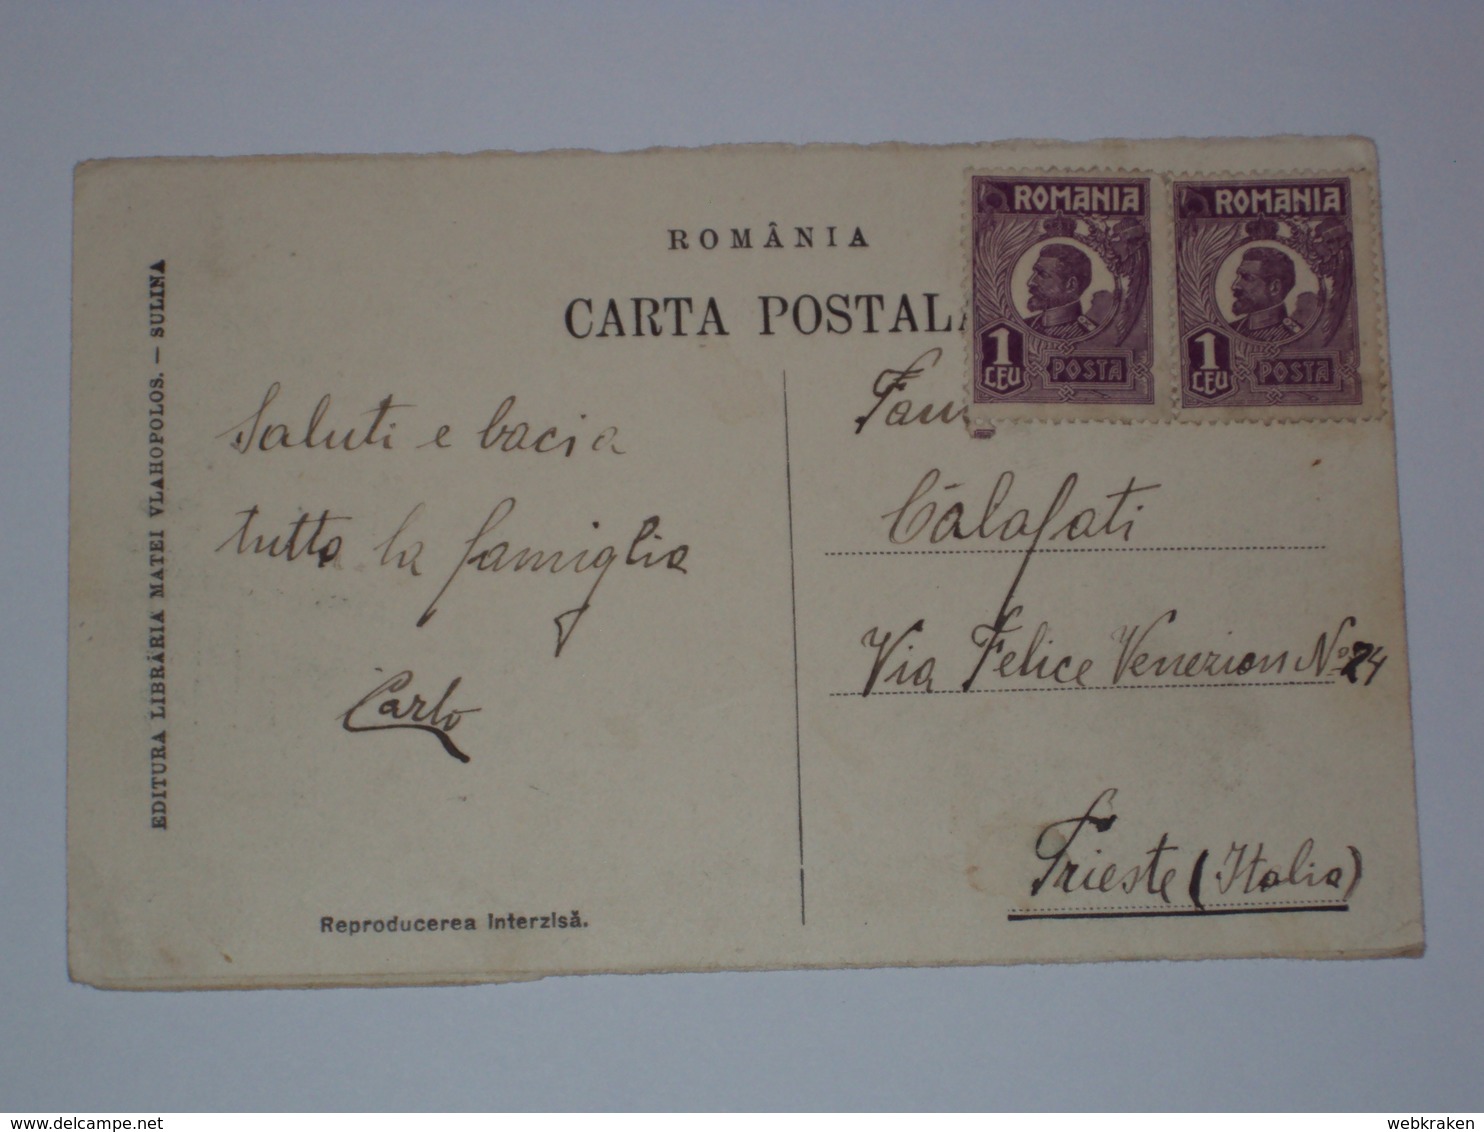 ROMÂNIA
CARTA POSTALA
ROMANIA
1
LEU
POSTA
ROMANIA
1
LEU
POSTA
EDITURA LIBRĂRIA MATEI VLAHOPOLOS. — SULINA
Saluti e baci a
tutta la famiglia
Carlo
Reproducerea interzisă.
Fam
Calafati
Via Felice Venezian No 24
Trieste (Italia)
delcampe.net
webkraken